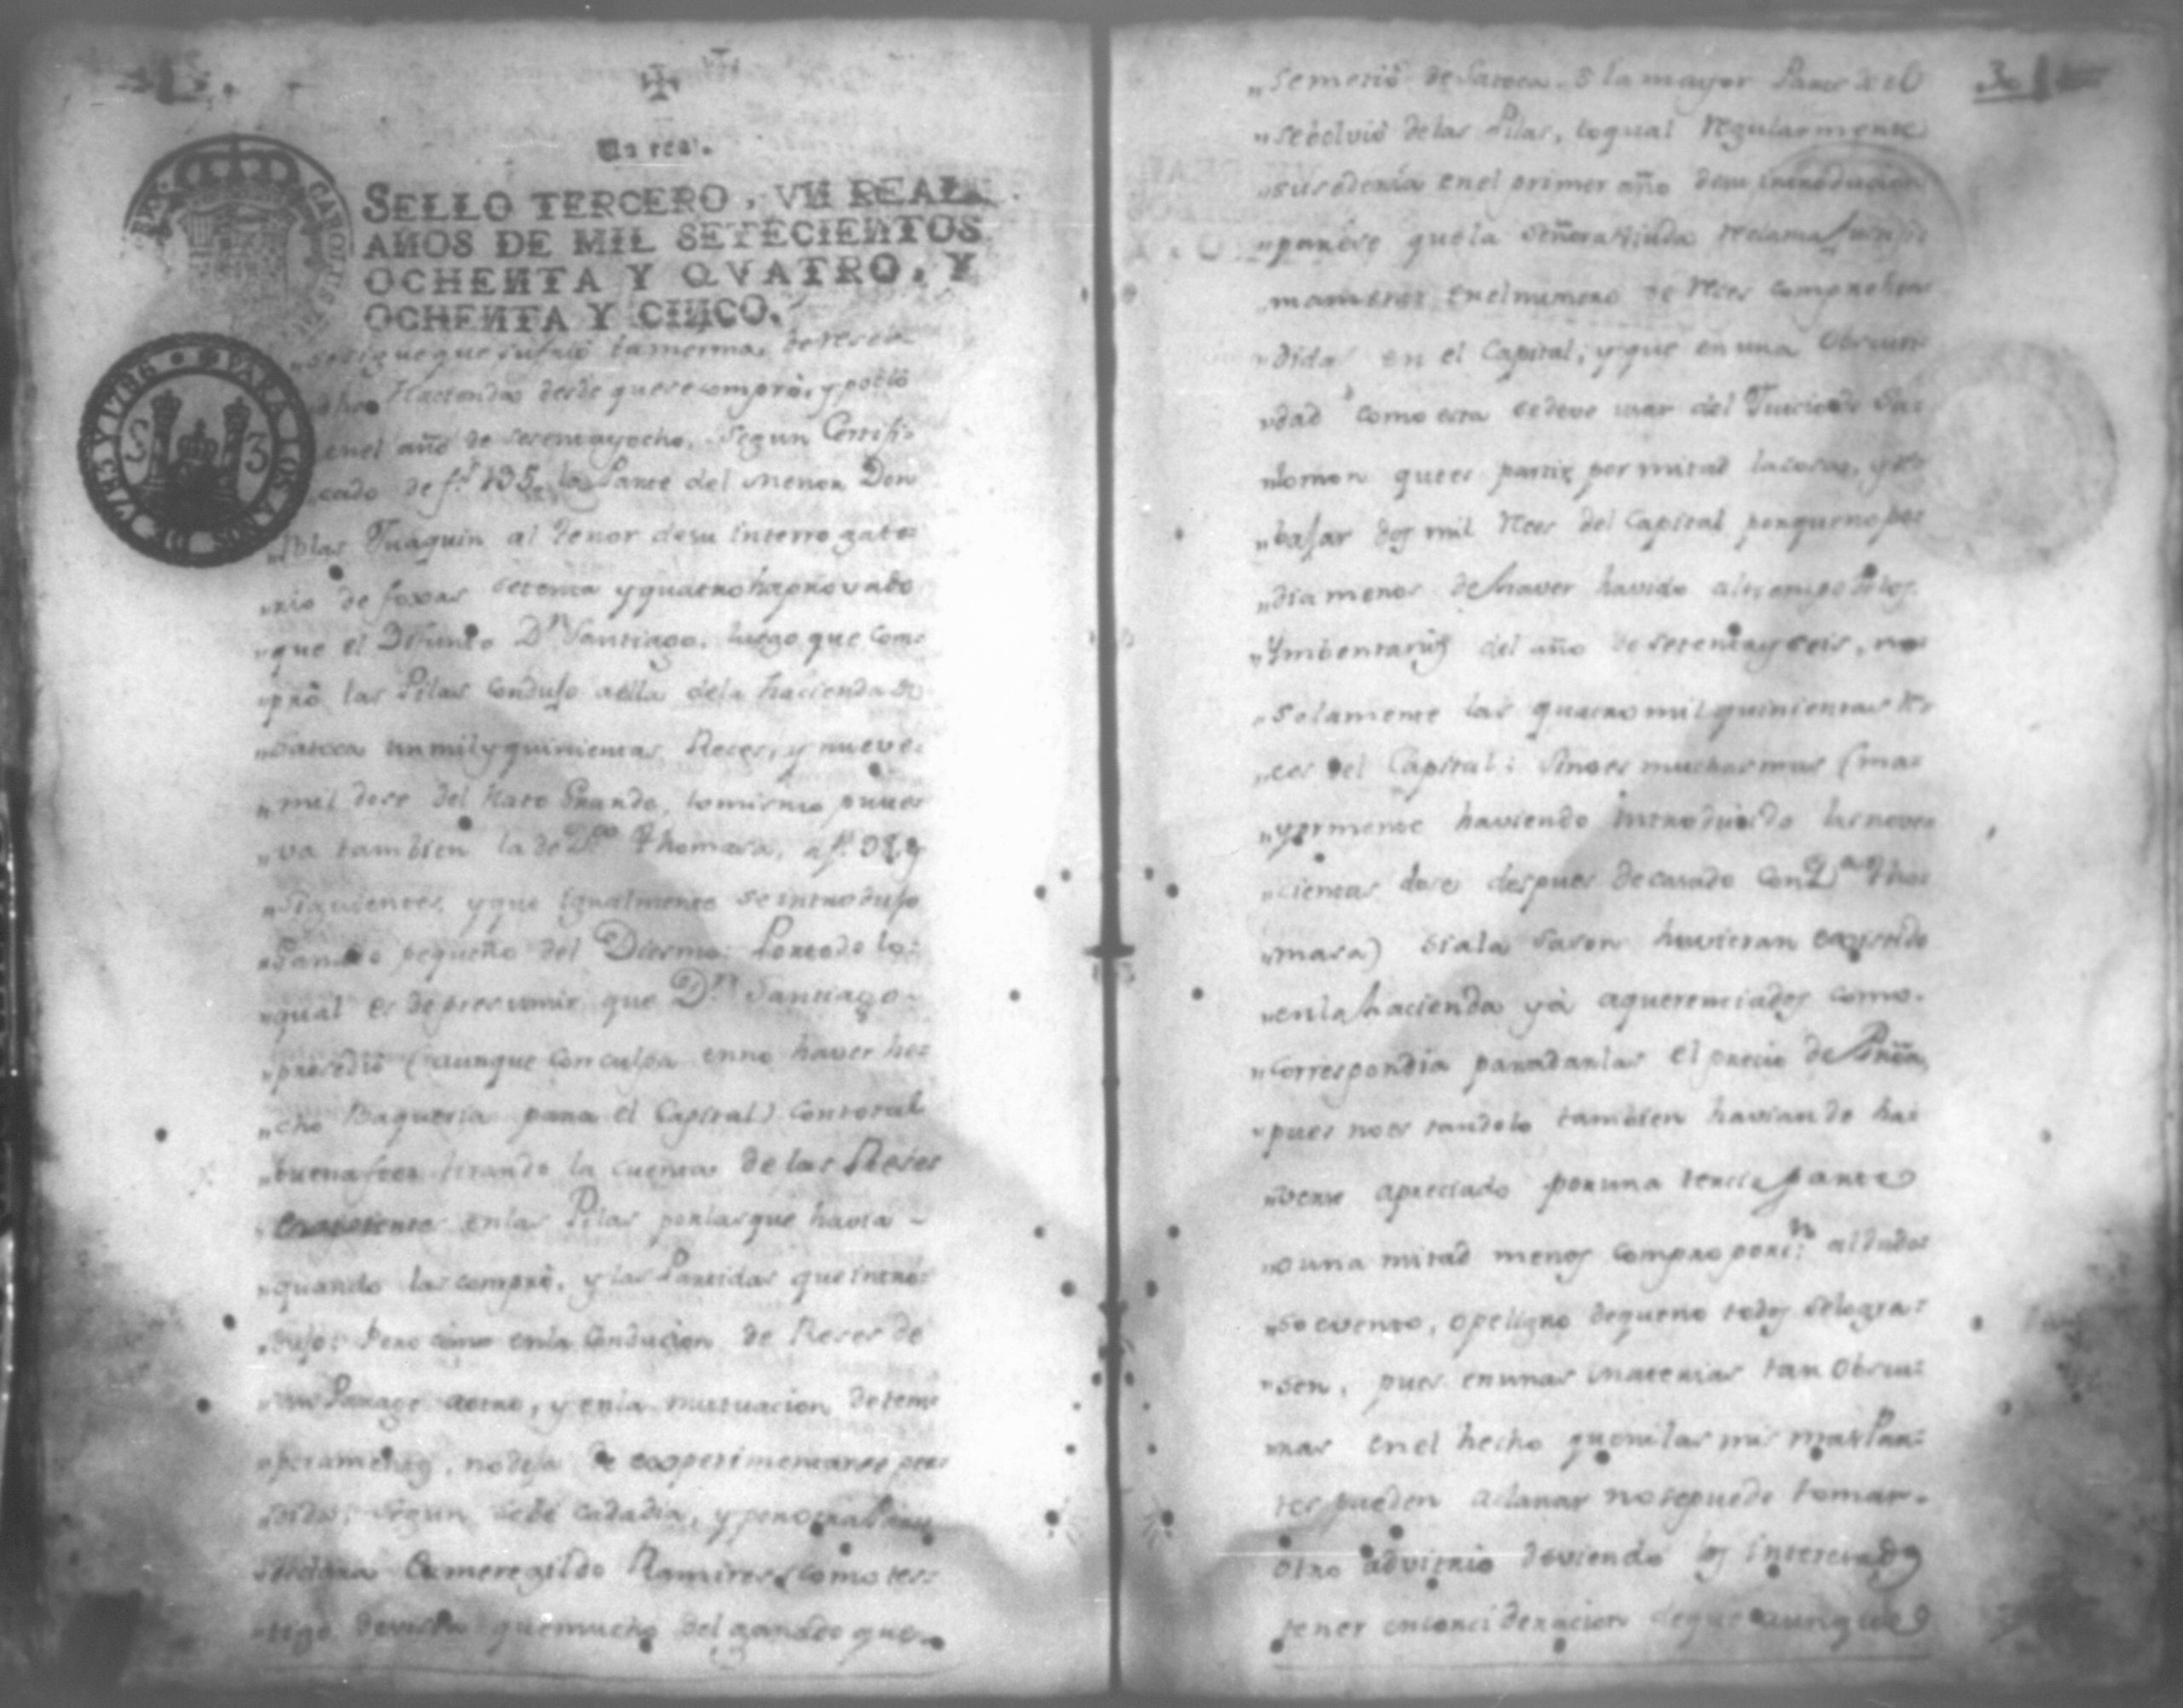 Un real.
SELLO TERCERO, VN REAL
AÑOS DE MIL SETECIENTOS
OCHENTA Y QVATRO, Y
OCHENTA Y CINCO.
PARA LOS AÑOS DE 1785 Y 1786
S 3
„se sigue que sufrió la merma, de resea
Haciendas desde que se compró, y pobló
„en el año de setenta y ocho, segun Certifi=
cado de f.s 135, la Parte del menor Don
„Blas Juaquin al tenor de su interrogato=
„rio de foxas setenta y quatro ha provado
„que el Difunto D.n Santiago, luego que Com=
„pró las Pilas condujo a ella de la hacienda de
„Saroca un mil y quinientas Reces, y nueve=
„mil dose del Hato Grande, lo mismo prue=
„va tambien la de D.a Thomasa, a f.s 98, y
„siguientes, y que igualmente se introdujo
„Ganado pequeño del Diesmo: Por todo lo=
„qual es de presumir que D.n Santiago
„prosedió (aunque con culpa en no haver he=
„cho Baqueria para el Capital) con total
„buena fee tirando la cuenta de las Reses
„Existentes en las Pilas por las que havia
„quando las compró, y las Partidas que intro=
„dujo: Pero como en la Conducion de Reses de
„un Parage a otro, y en la mutuacion de tem=
„peramentos, no deja de experimentarse per=
„dida, segun se bé cada dia, y por otra Parte
„declara Ermeregildo Ramires, (como tes=
„tigo de vista que mucho del ganado que
„se metió de Saroca ó la mayor Parte de el
„se bolvió de las Pilas, lo qual regularmente
„susederia en el primer año de su introducion
„parese que la Señora Viuda reclama
en el numero de reses comprehen=
„didas en el Capital; y que en una Obscuri=
„dad como esta se deve usar del Juicio de Sa=
„lomon que es partir por mitad la cosa, y
„bajar dos mil reses del Capital porque no po=
„dia menos de haver havido al tiempo de los
„Ymbentarios del año de setenta y seis, no
„solamente las quatro mil quinientas re=
„ces del Capital; sino es muchas mas (ma=
„yormente haviendo introducido las nove=
„cientas dose despues de casado con D.a Tho=
„masa) si a la sason huvieran existido
„en la hacienda yá aquerenciados como
„correspondia para darlas el precio de
„pues no es tandolo tambien havian de ha=
„verse apreciado por una tercia parte
„o una mitad menos com propori.n al dudo=
„so evento, o peligro de que no todos se logra=
„sen, pues en unas materias tan Obscu=
„ras en el hecho que ni las mis mas Par=
tes pueden aclarar no se puede tomar
otro advitrio deviendo los Interesados
tener en consideracion de que aunque